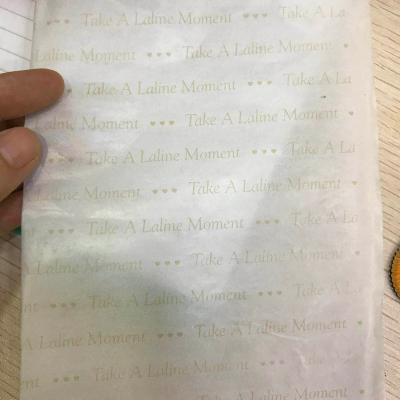 Take A Laline Moment ♥♥♥ Take A La
Laline Moment ♥♥♥ Take A Laline Moment ♥
Take A Laline Moment ♥♥♥ Take A La
Laline Moment ♥♥♥ Take A Laline Moment ♥
♥♥ Take A Laline Moment ♥♥♥ Take A La
Laline Moment ♥♥♥ Take A Laline Moment ♥
♥♥♥ Take A Laline Moment ♥♥♥ Take A La
A Laline Moment ♥♥♥ Take A Laline Moment ♥
nt ♥♥♥ Take A Laline Moment ♥♥♥ Take A L
A Laline Moment ♥♥♥ Take A Laline Moment ♥
ent ♥♥♥ Take A Laline Moment ♥♥♥ Take A
Laline Moment ♥♥♥ Take A Laline Moment ♥